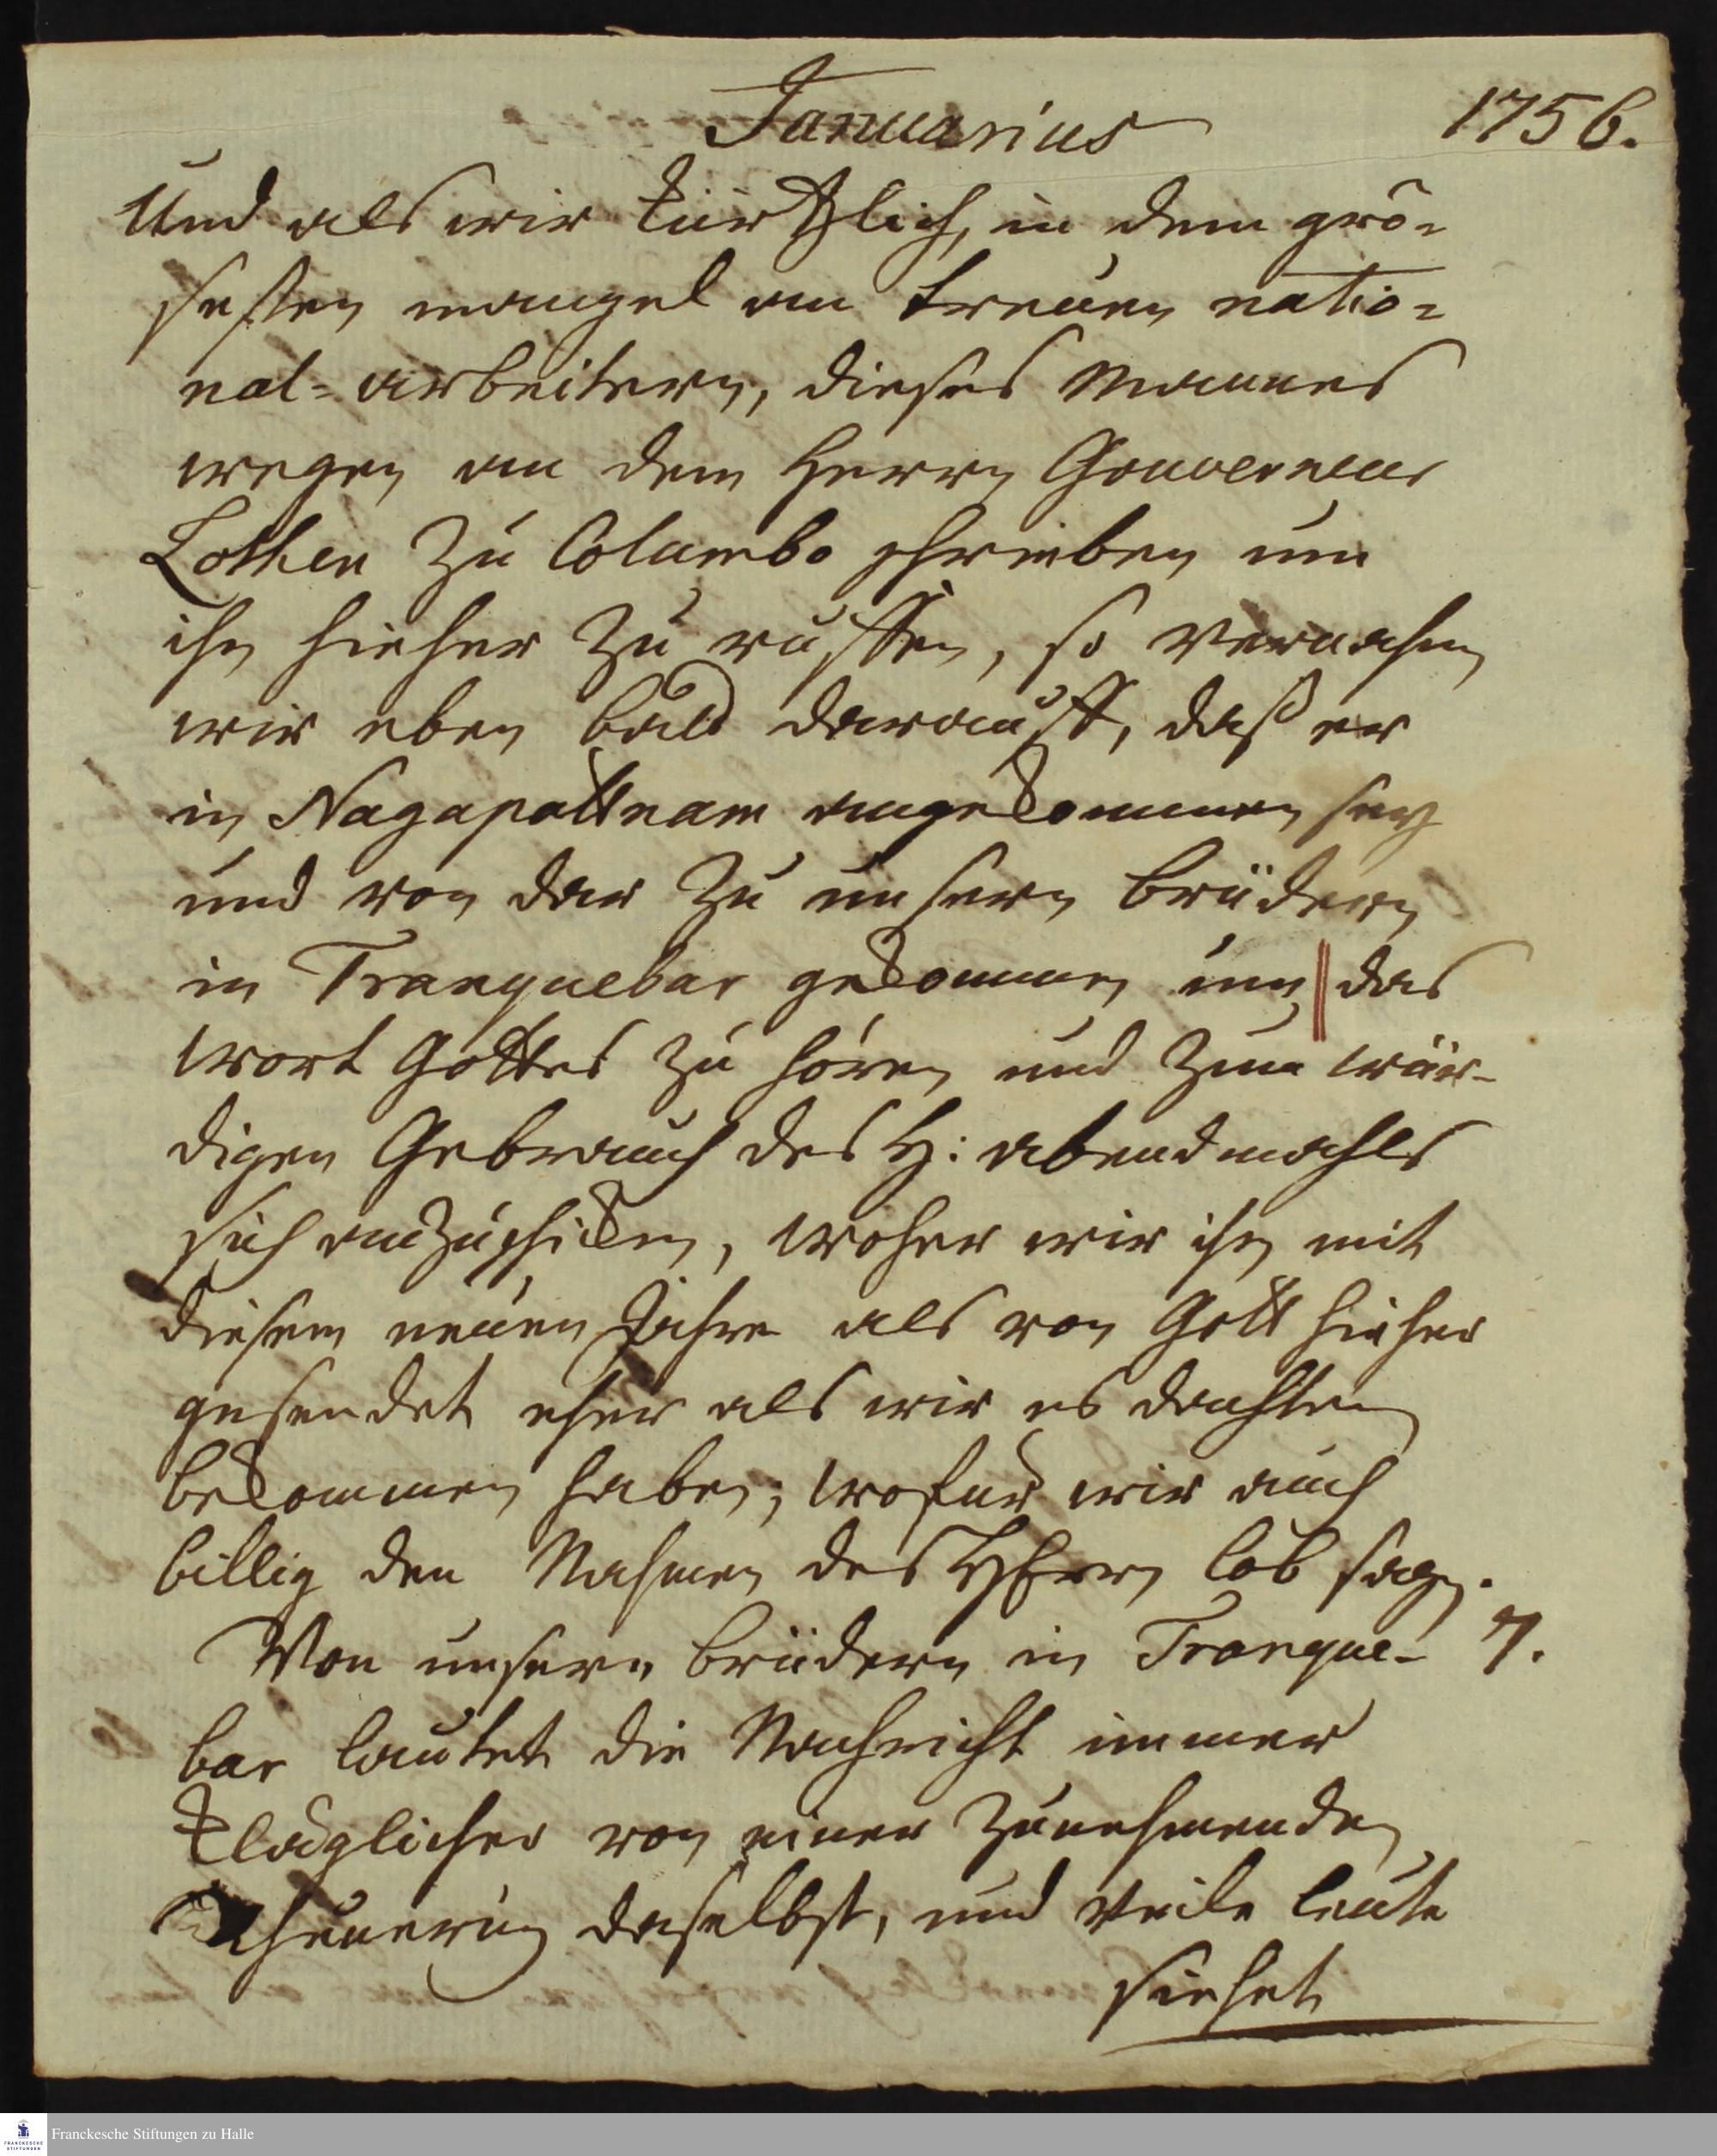 Januarius 1756.
Und als wir kürtzlich, in dem grö-
sesten mangel an treuen natio-
nal-arbeitern, dieses Mannes
wegen an dem Herrn Gouverneur
Lothen zu Columbo schrieben um
ihn hieher zu ruffen, so vernahmen
wir eben bald darauff, daß er
in Nagapattnam angekommen sey
und von dar zu unsern brüdern
in Tranquebar gekommen um das
Wort Gottes zu hören und zum wür-
digen Gebrauch des H: abendmahls
sich anzuschicken, woher wir ihn mit
diesem neuen Jahre als von Gott hieher
gesendet eher als wir es dachten
bekommen haben; wofur wir auch
billig den Nahmen des HErrn lob sagen.
Von unsern brüdern in Tranque- 7.
bar lautet die Nachricht immer
kläglicher von einer zunehmenden
Theuerung daselbst, und viele leute
siehet
Franckesche Stiftungen zu Halle
FRANCKESCHE
STIFTUNGEN